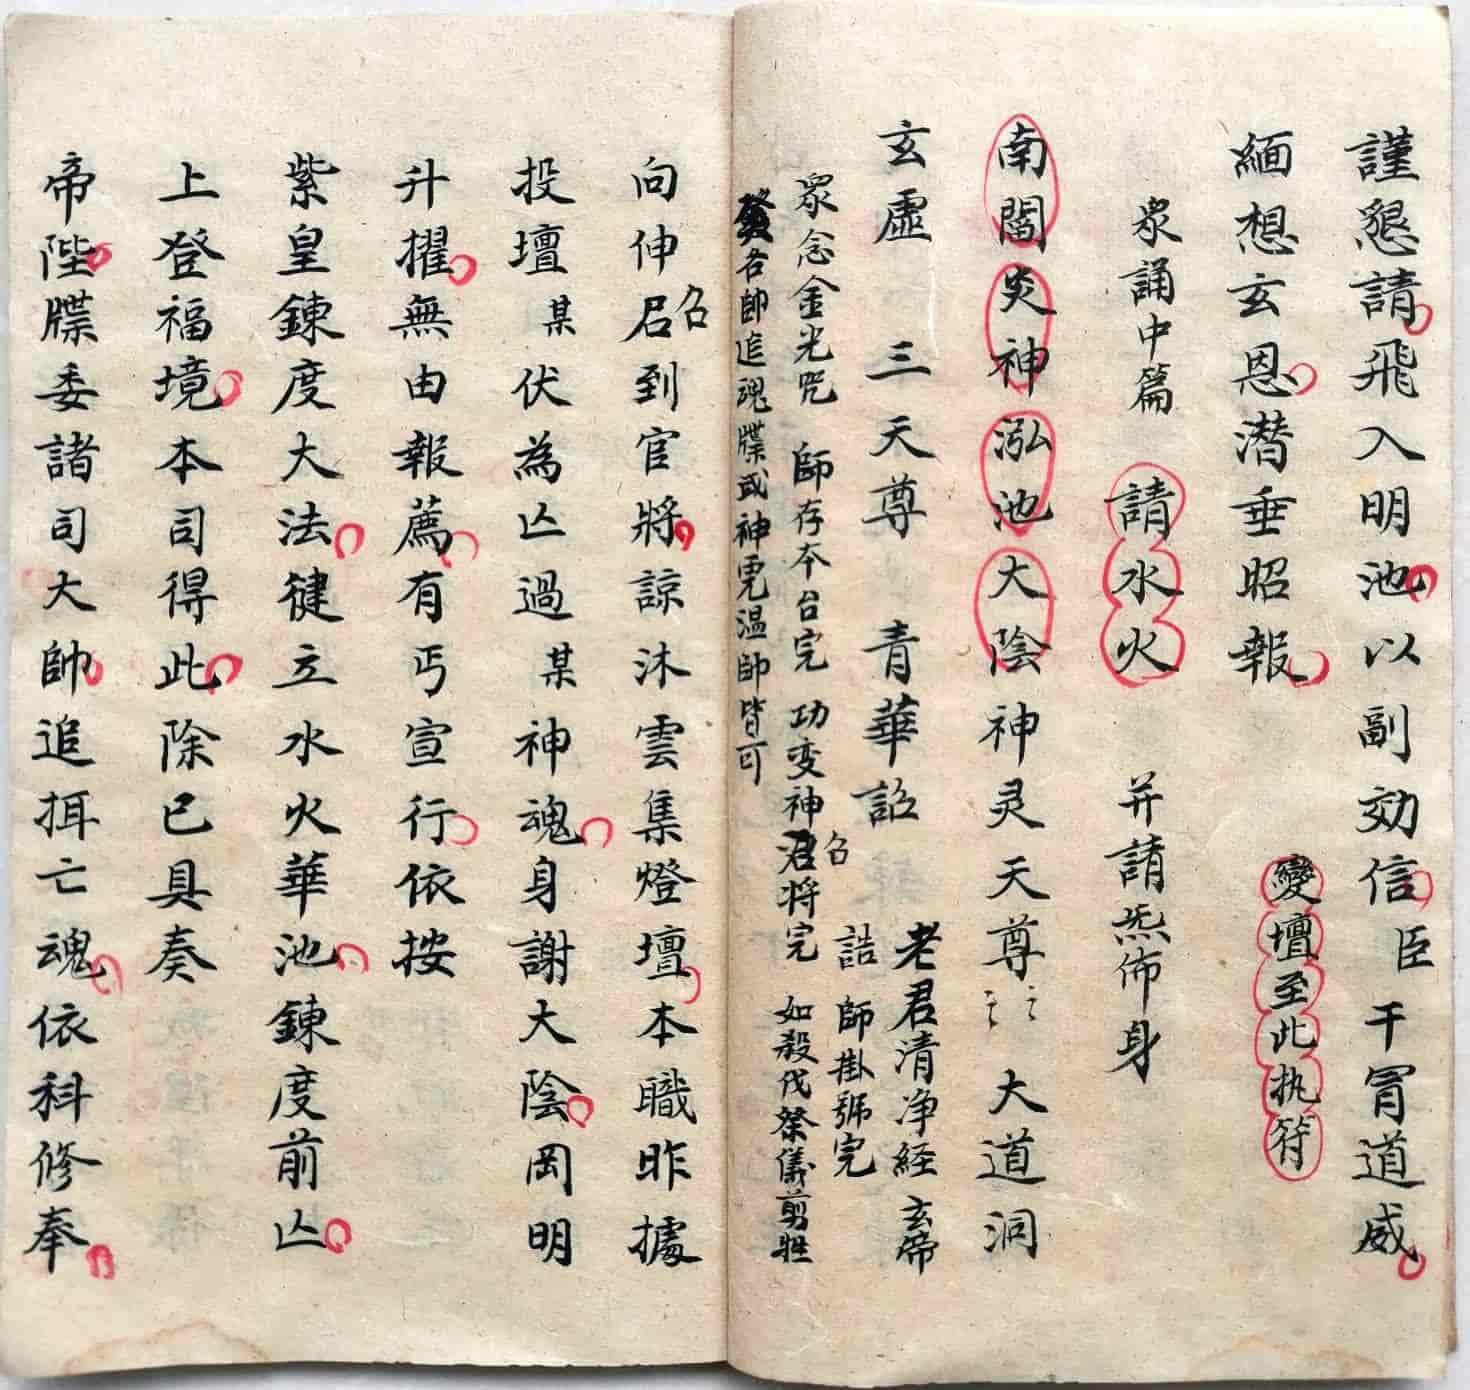 謹懇請飛入明池以副効信臣干冒道威
緬想玄恩潜垂昭報
變壇至此执符
衆誦中篇
請水火
并請炁佈身
南閻炎神泓池大陰神灵天尊 大道洞
玄虛 三天尊 青華詔
老君清净経 玄帝
誥 師掛號完
衆念金光咒 師存本台完 功変神召将完 如殺伐祭儀剪牲
各帥追魂牒或神虎温帥皆可
向伸召到官將諒沐雲集燈壇本職昨據
投壇某伏為亾過某神魂身謝大陰罔明
升擢無由報薦有丐宣行依按
紫皇鍊度大法犍立水火華池鍊度前亾
上登福境本司得此除已具奏
帝陛牒委諸司大帥追揖亡魂依科修奉